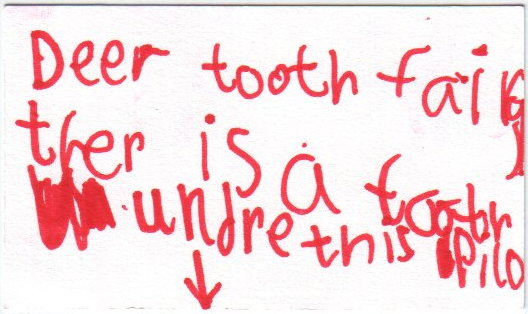 Deer tooth fairy
ther is a tooth
undre this pilo